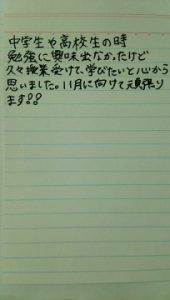 中学生や高校生の時
勉強に興味出なかったけど
久々授業受けて、学びたいと心から
思いました。11月に向けて頑張り
ます!!